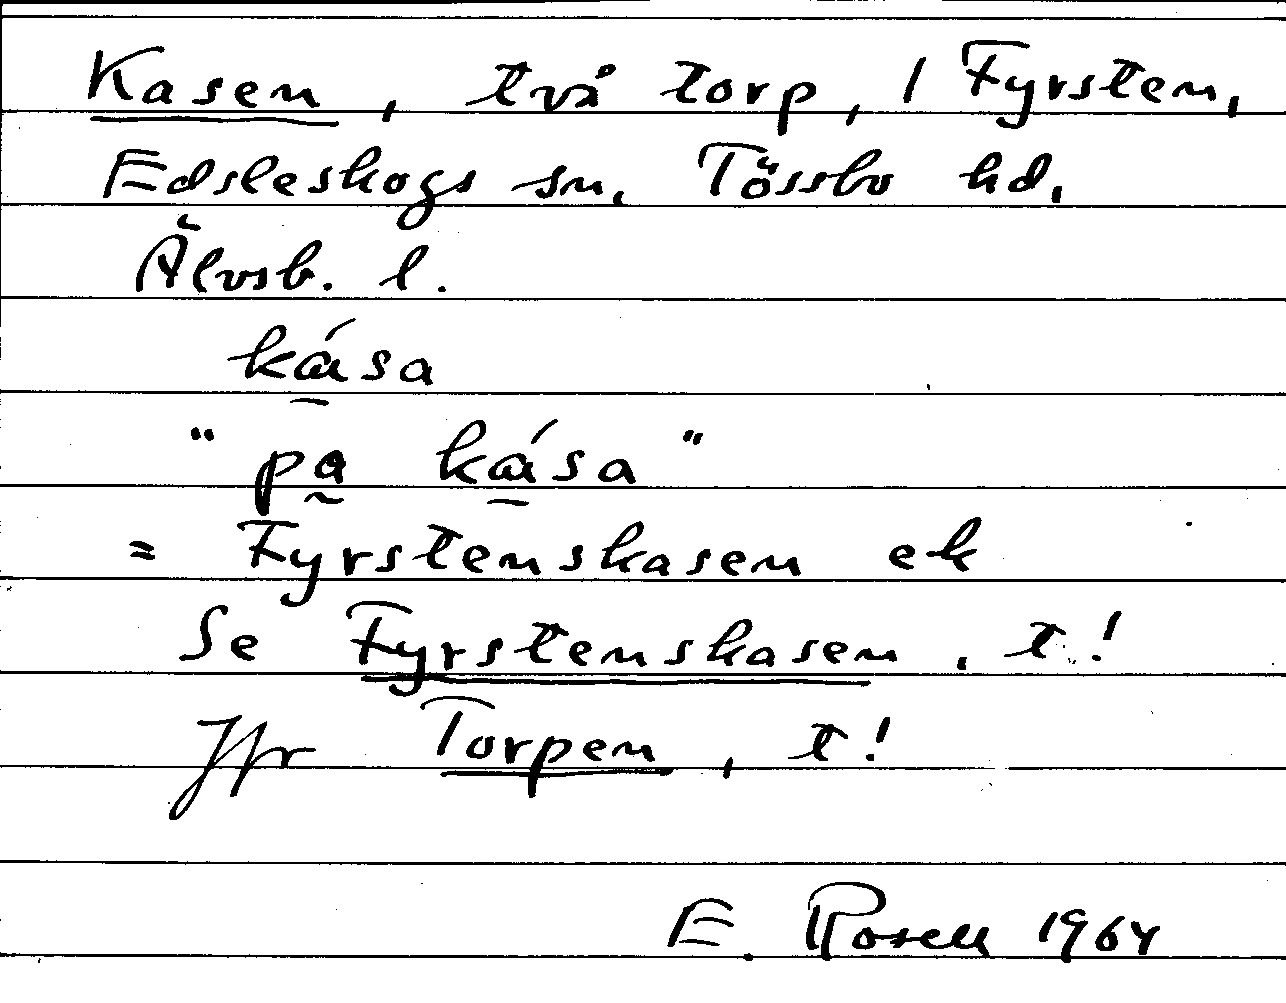 Kasen, två torp, / Fyrsten,
Edsleskogs sn. Tössbo hd.
Älvsb. l.
kása
"på kása"
= Fyrstenskasen ek
Se Fyrstenskasen, t!
Jfr Torpen, t!
E. Rosell 1964